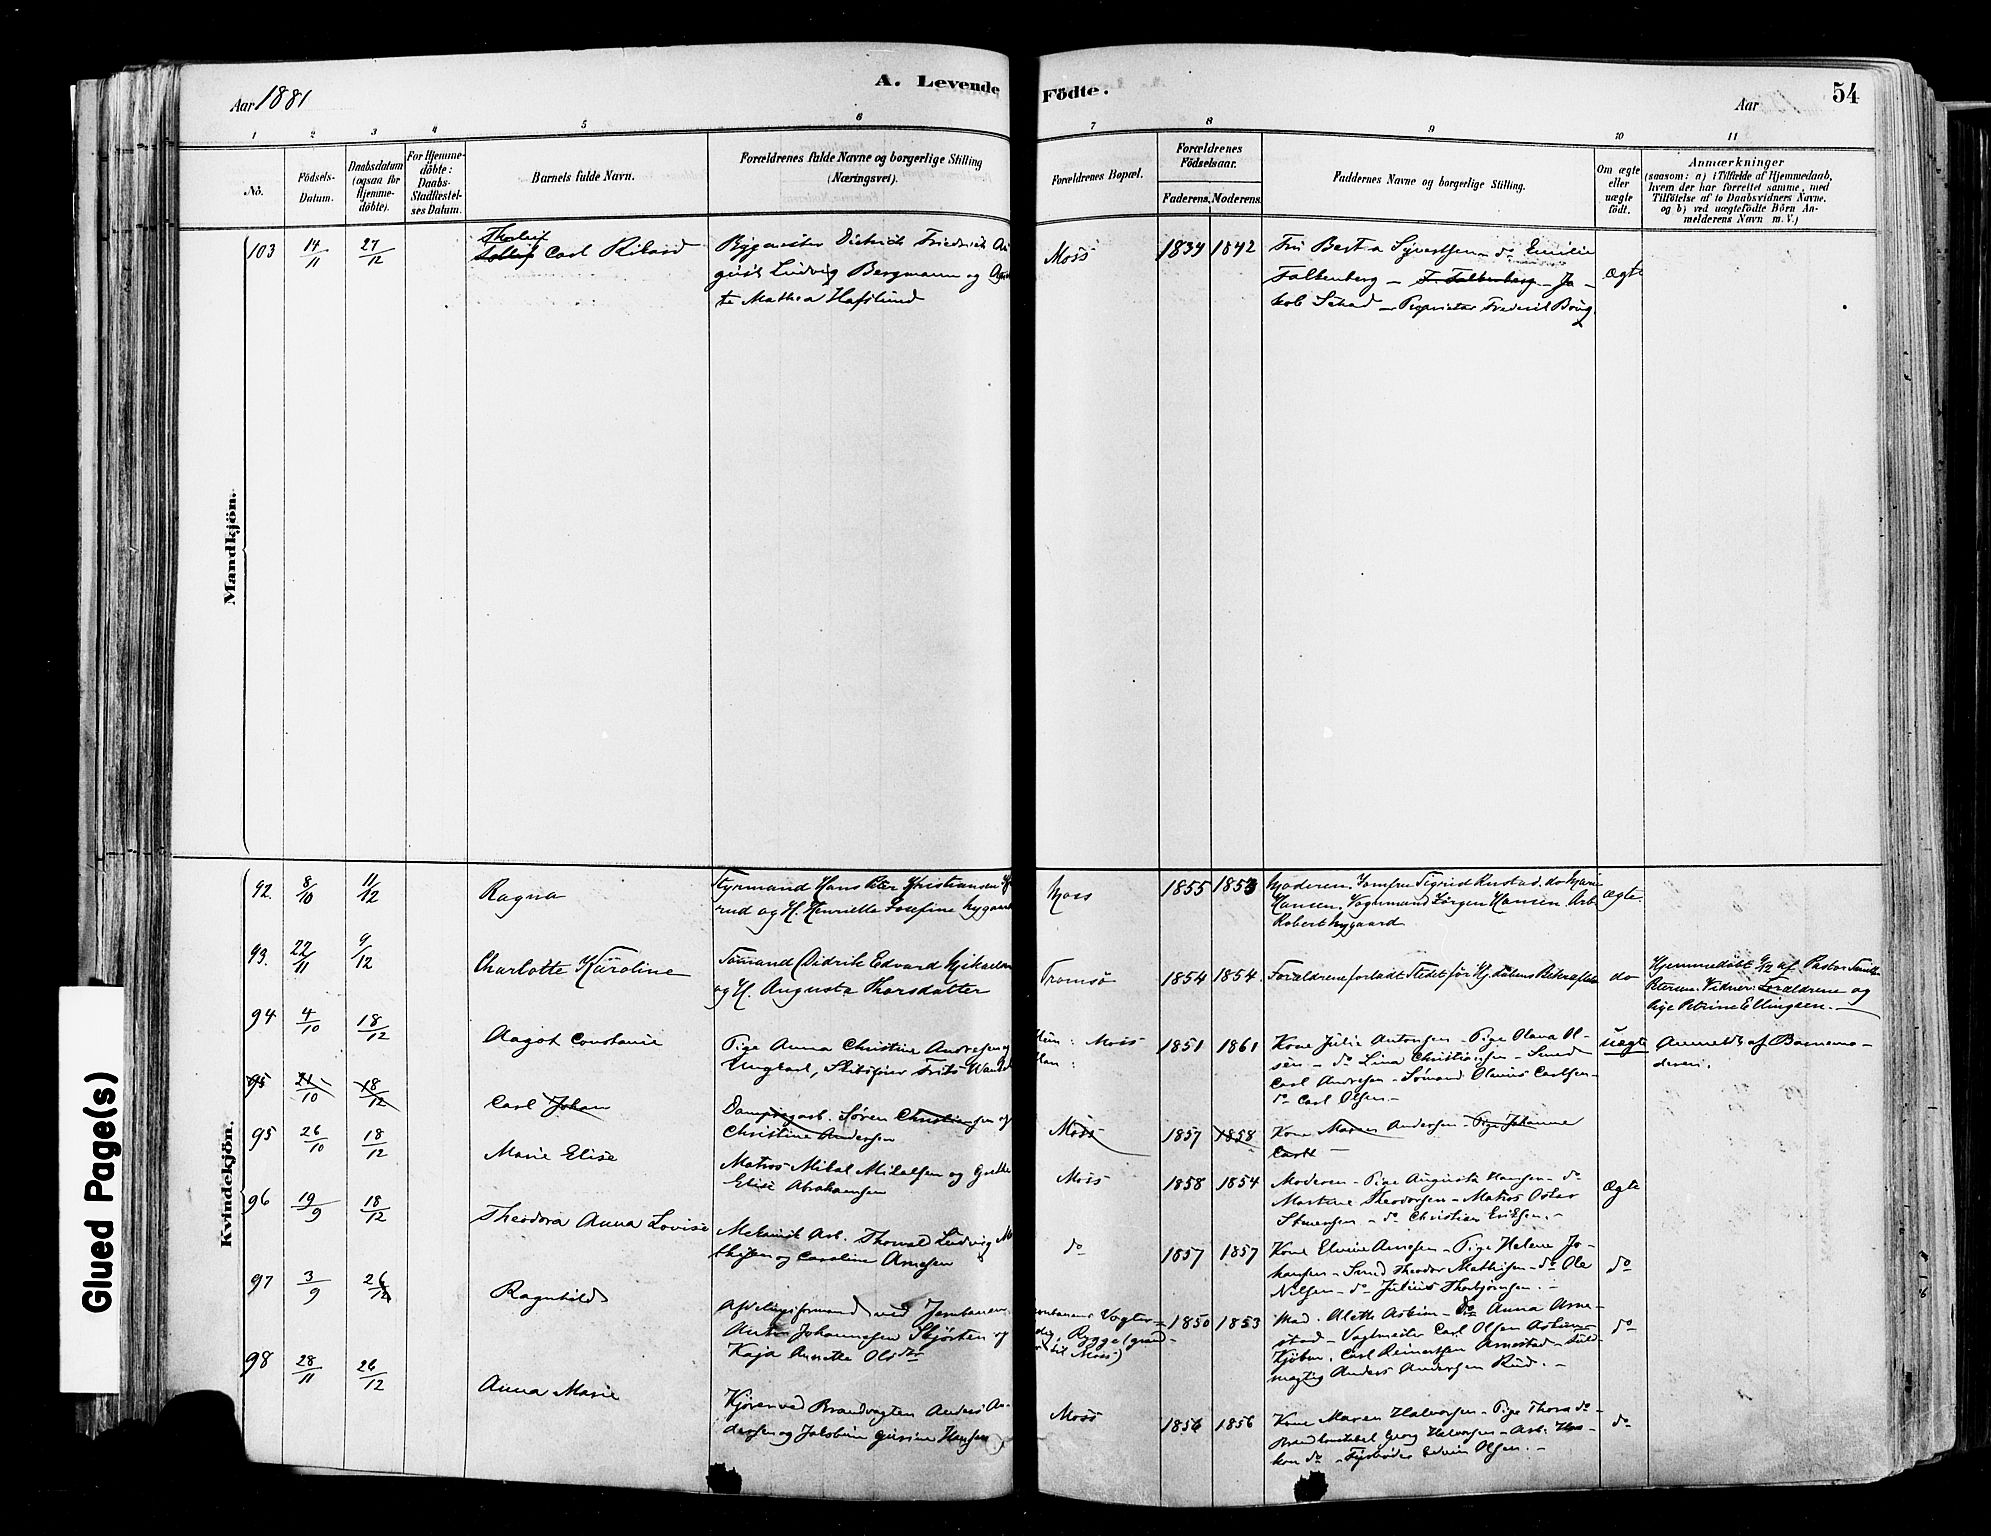 Aar 1881
A. Levende
Födte.
Aar
54
1 2 3 4 5 6 7 8 9 10 11
No.
Födsels-
Datum.
Daabsdatum
(ogsaa for
Hjemme-
döbte).
For Hjemme-
döbte:
Daabs-
Stadfæstel-
ses Datum.
Barnets fulde Navn.
Forældrenes fulde Navne og borgerlige Stilling
(Næringsvei).
Forældrenes Bopæl.
Forældrenes
Födselsaar.
Faderens. Moderens.
Faddernes Navne og borgerlige Stilling.
Om ægte
eller
uægte
födt.
Anmærkninger
(saasom: a) i Tilfælde af Hjemmedaab,
hvem der har forrettet samme, med
Tilföielse af to Daabsvidners Navne,
og b) ved uægtefödte Börn An-
melderens Navn m. V.)
Mandkjön.
103 14/11 27/12
Carl Rikard
Bygmester Dietrich Friederich Au
gust Ludvig Bergmann og
te Mathea Hafslund
Moss
1834 1842
Emilie
Falkenberg — F. Falkenberg — Ja-
kob Schad — Proprietær Frederik
Ægte
Kvindekjön.
92. 8/10 11/12
Ragna
Styrmand Hans Peter Kristiansen
rud og H. Henriette Josefine Nygaard
Moss
1855 1853
Moderen. Jomfru Sigrid Rustad. do Marie
Hansen. Vognmand Jørgen Hansen. Arb.
Robert Nygaard
Ægte.
93. 22/11 9/12
Charlotte Karoline
Sømand Didrik Edvard
og H. Augusta Thorsdatter
Tromsø
1854 1854.
Forældrene forladt Stedet før Hj.daabens Bekræftelse
do
Hjemmedøbt 9/12 af Pastor
Petersen. Vidner: Forældrene og
Pige Petrine Ellingsen.
94 4/10 18/12
Aagot Constanse
Pige Anna Christine Andresen og
Ungkarl, Skibsfører Frits
Hun: Moss
Han:
1851 1861
Kone Julie Antonsen — Pige Olava Ol-
sen — do Lina Christiansen — Smed
Carl Andresen — Sømand Olavus Carlsen —
do Carl Olsen —
Uægte
Anmeldt af Barnemo-
deren.
95 21/10 18/12
Carl Johan
Søren Christiansen og
Christine Andersen
Moss
1857 1858
Kone Maren Andersen — Pige Johanne
95 26/10 18/12
Marie Elise
Matros Mikal Mikalsen og Grethe
Elise Abrahamsen
Moss
1858 1854
Moderen — Pige Augusta Hansen — do
Martine Theodorsen — Matros Oskar
do Christian Eriksen —
Ægte
96 19/9 18/12
Theodora Anna Lovise
Mekanisk Arb. Thorvald Ludvig Ma
thisen og Caroline Arnesen
do
1857 1857
Kone Elvine Arnesen — Pige Helene Jo-
hansen — Smed Theodor Mathisen — do Ole
Nilsen — do Julius Thorbjørnsen —
do
97 3/9 26/12
Ragnhild
Afdelingsformand ved Jernbanen
Johannesen Skjørten og
Kaja Annette Olsdtr
Rygge (grænd
til Moss)
1850 1853
Mad. Alethe Askim — do Anna Arne-
stad — Vagtmester Carl Olsen Askim —
Kjøbm. Carl Reinertsen Arnestad — Fuld-
mægtig Anders Andersen Rud. —
do
98 28/11 26/12
Anna Marie
Kjører ved Brandvagten Anders An-
dersen og Jakobine Gusine Hansen
Moss
1856 1856
Kone Maren Halvorsen — Pige Thora do —
Brandkonstabel Georg Halvorsen — Arb. Haa-
kon do — Fyrbøder Edvin Olsen. —
do
Glued Page(s)